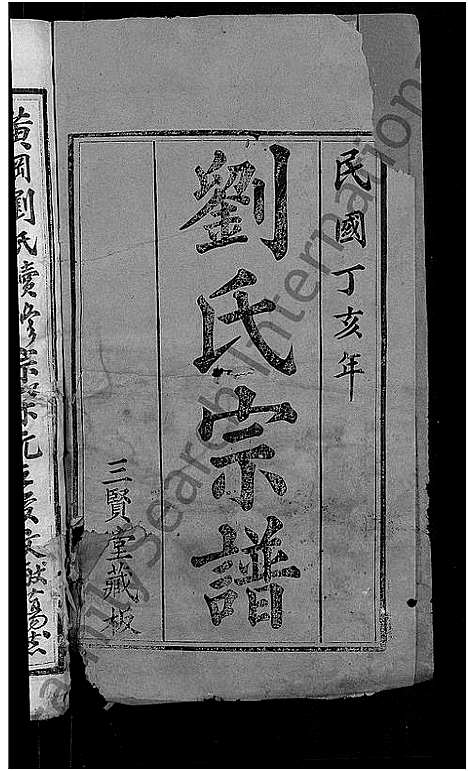 民國丁亥年
劉氏宗譜
三賢堂藏板
黃岡劉氏續修宗